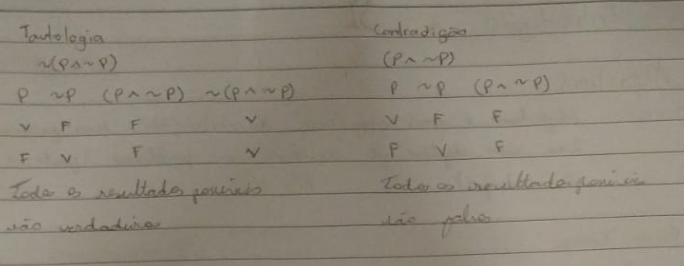 Tautologia
~(P ∧ ~P)
P ~P (P ∧ ~P) ~(P ∧ ~P)
V F F V
F V F V
Todo os resultados possíveis
são verdadeiros
Contradição
(P ∧ ~P)
P ~P (P ∧ ~P)
V F F
F V F
Todos os resultados possíveis
são falsos